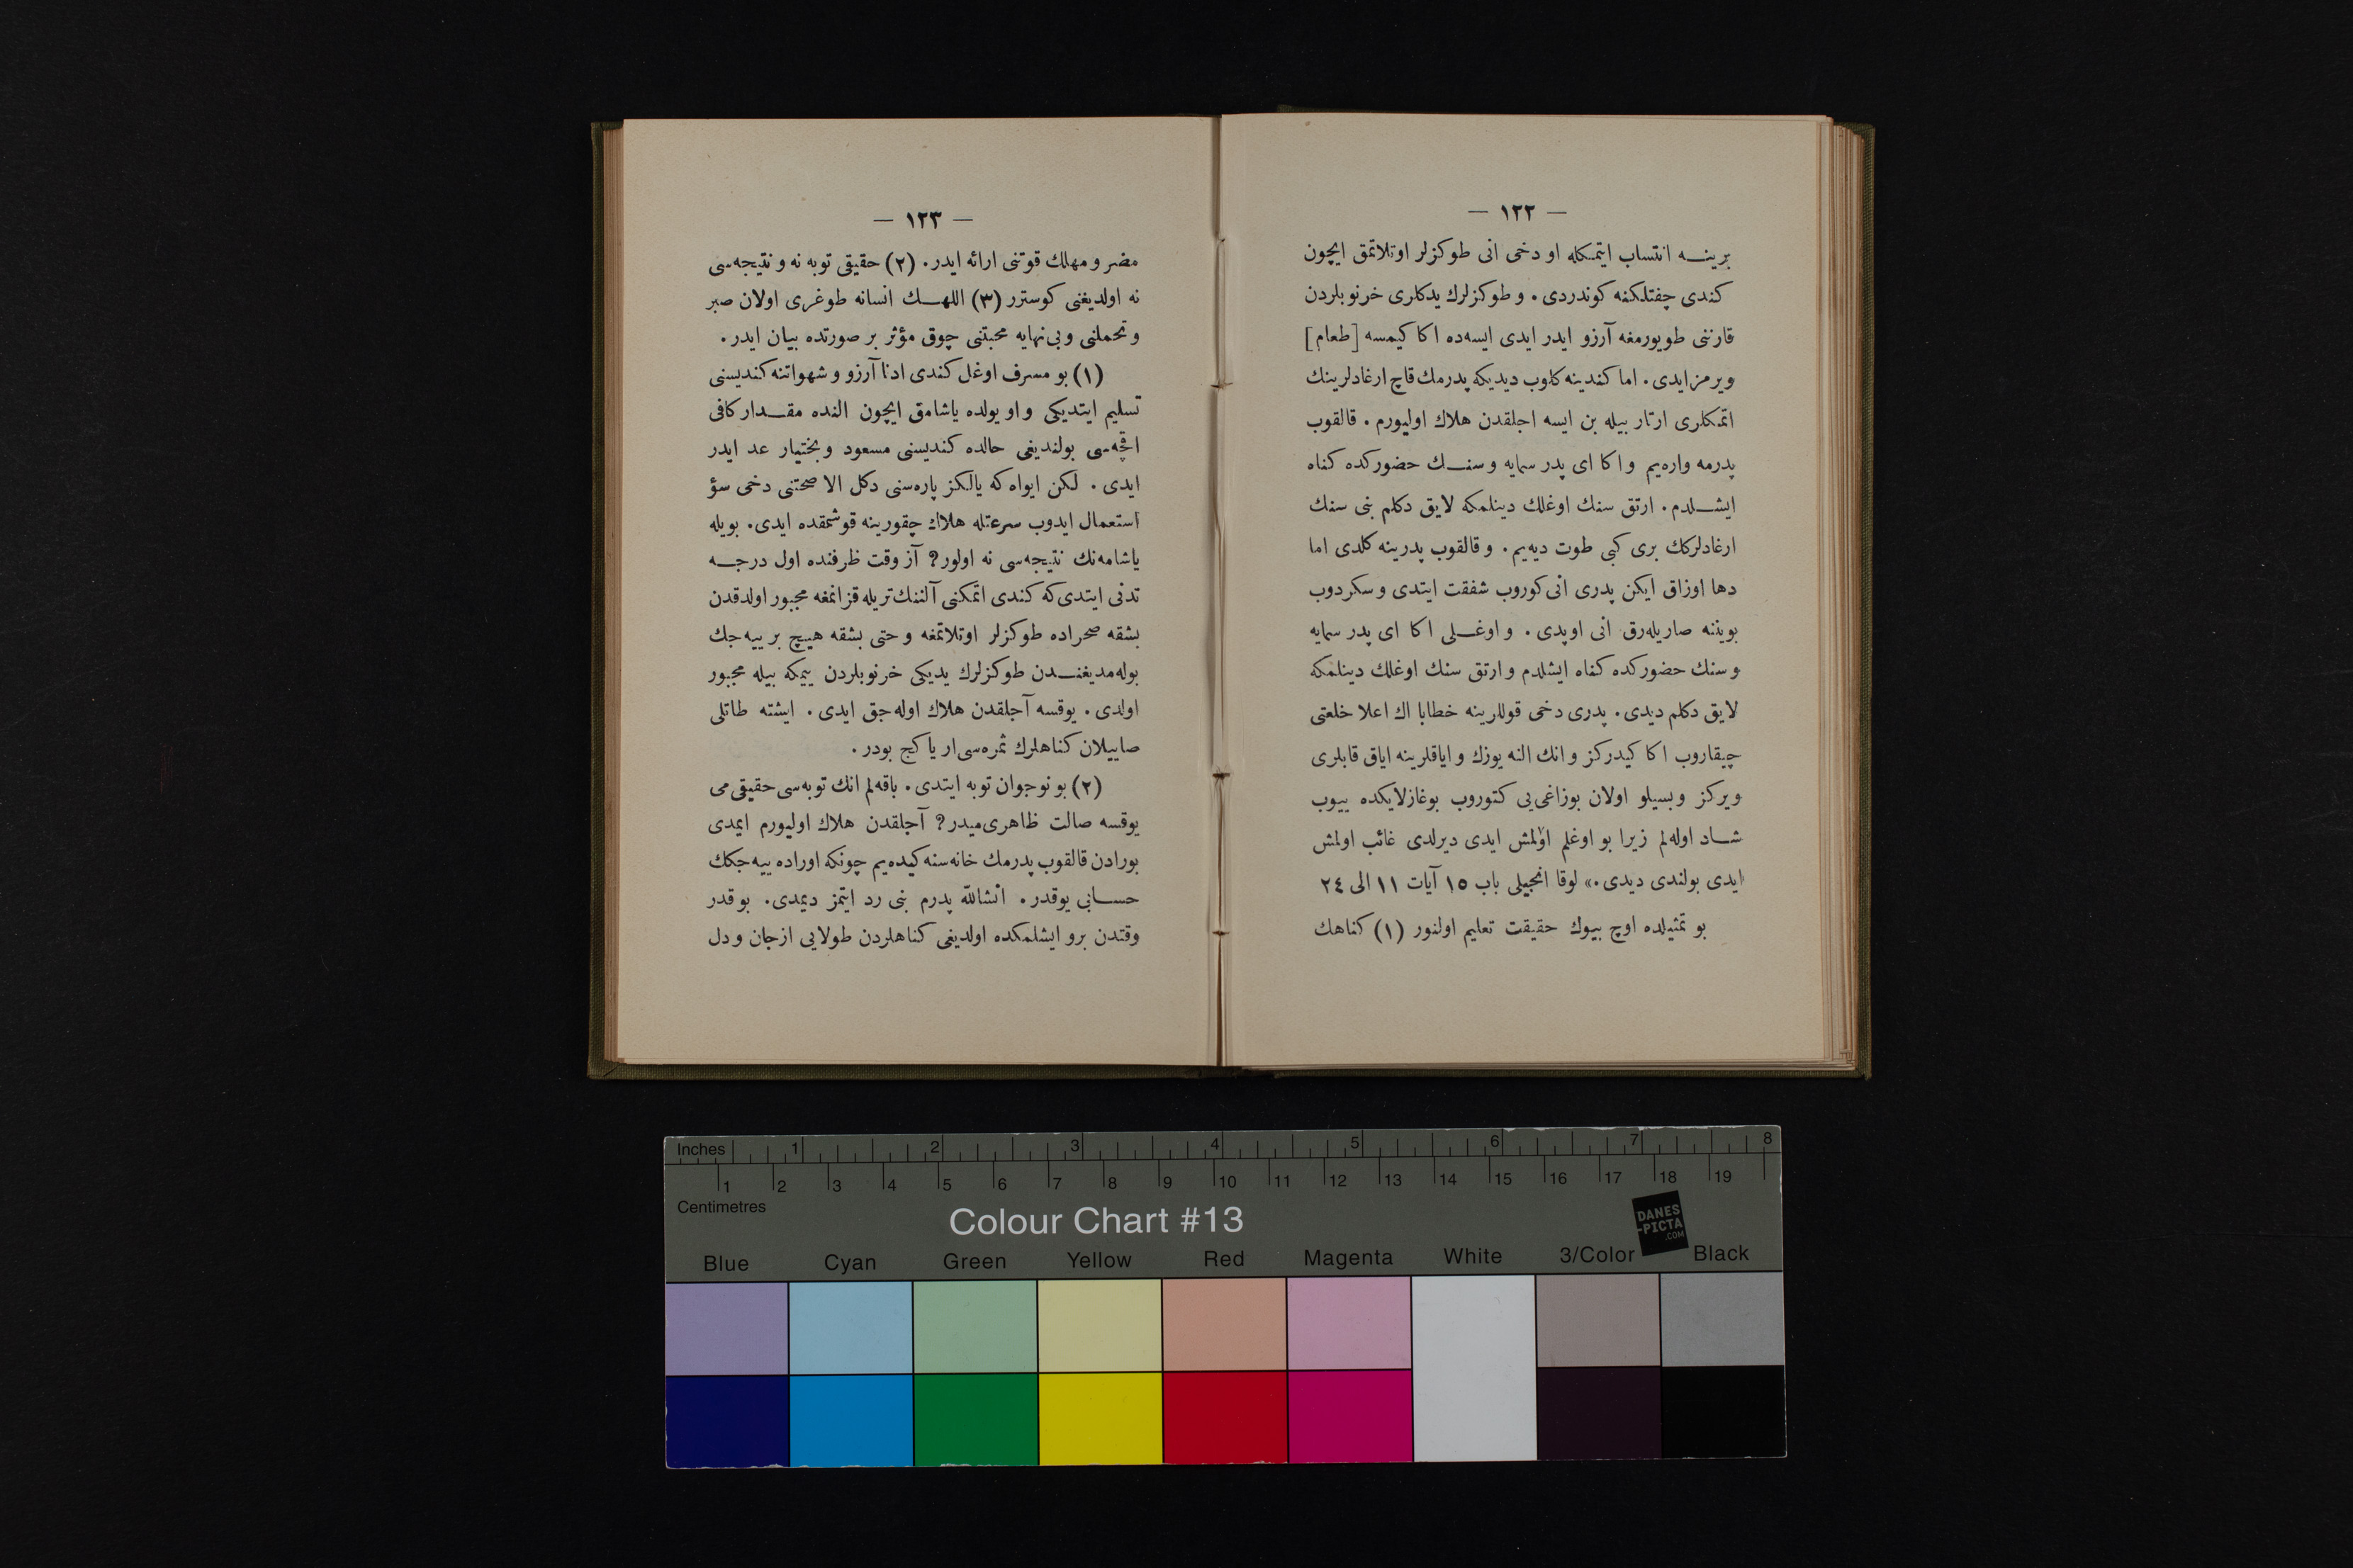 — ١٢٢ —
برينــه انتساب ايتمكله او دخى انى طوكزلر اوتلاتمق ايچون
كندى چفتلكنه كوندردى. و طوكزلرك يدكلرى خرنوبلردن
قارننى طويورمغه آرزو ايدر ايدى ايسه‌ده اكا كيمسه [طعام]
ويرمز ايدى. اما كندينه كلوب ديديكه پدرمك قاچ ارغادلرينك
اتمكلرى ارتار بيله بن ايسه اجلقدن هلاك اوليورم. قالقوب
پدرمه واره‌يم و اكا اى پدر سمايه و سنــك حضوركده كناه
ايشــلدم. ارتق سنك اوغلك دينلمكه لايق دكلم بنى سنك
ارغادلركك برى كبى طوت ديه‌يم. و قالقوب پدرينه كلدى اما
دها اوزاق ايكن پدرى انى كوروب شفقت ايتدى و سكردوب
بويننه صاريله‌رق انى اوپدى. و اوغــلى اكا اى پدر سمايه
و سنك حضوركده كناه ايشلدم و ارتق سنك اوغلك دينلمكه
لايق دكلم ديدى. پدرى دخى قوللرينه خطابا اك اعلا خلعتى
چيقاروب اكا كيدركز و انك النه يوزك و اياقلرينه اياق قابلرى
ويركز و بسيلو اولان بوزاغى‌يى كتوروب بوغازلايكده ييوب
شــاد اوله‌لم زيرا بو اوغلم اولمش ايدى ديرلدى غائب اولمش
ايدى بولندى ديدى.» لوقا انجيلى باب ١٥ آيات ١١ الى ٢٤
بو تمثيلده اوچ بيوك حقيقت تعليم اولنور (١) كناهك
— ١٢٣ —
مضر و مهلك قوتنى ارائه ايدر. (٢) حقيقى توبه نه و نتيجه‌سى
نه اولديغنى كوسترر (٣) اللهــك انسانه طوغرى اولان صبر
و تحملنى و بى‌نهايه محبتنى چوق مؤثر بر صورتده بيان ايدر.
(١) بو مسرف اوغل كندى ادنا آرزو و شهواتنه كنديسنى
تسليم ايتديكى و او يولده ياشامق ايچون النده مقــدار كافى
اقچه‌سى بولنديغى حالده كنديسنى مسعود و بختيار عد ايدر
ايدى. لكن ايواه كه يالكز پاره‌سنى دكل الا صحتنى دخى سؤ
استعمال ايدوب سرعتله هلاك چقورينه قوشمقده ايدى. بويله
ياشامه‌نك نتيجه‌سى نه اولور؟ آز وقت ظرفنده اول درجــه
تدنى ايتدى كه كندى اتمكنى آلننك تريله قزانمغه مجبور اولدقدن
بشقه صحراده طوكزلر اوتلاتمغه و حتى بشقه هيچ بر ييه‌جك
بوله‌مديغنــدن طوكزلرك يديكى خرنوبلردن ييمكه بيله مجبور
اولدى. يوقسه آجلقدن هلاك اوله‌جق ايدى. ايشته طاتلى
صاييلان كناهلرك ثمره‌سى ار يا كج بودر.
(٢) بو نوجوان توبه ايتدى. باقه‌لم انك توبه‌سى حقيقى مى
يوقسه صالت ظاهرى‌ميدر؟ آجلقدن هلاك اوليورم ايمدى
بورادن قالقوب پدرمك خانه‌سنه كيده‌يم چونكه اوراده ييه‌جكك
حســابى يوقدر. انشاالله پدرم بنى رد ايتمز ديمدى. بو قدر
وقتدن برو ايشلمكده اولديغى كناهلردن طولايى از جان و دل
Inches 1 2 3 4 5 6 7 8
1 2 3 4 5 6 7 8 9 10 11 12 13 14 15 16 17 18 19
Centimetres
Colour Chart #13
DANES
-PICTA
.COM
Blue Cyan Green Yellow Red Magenta White 3/Color Black